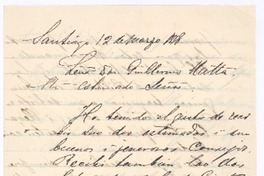 Santiago 12 de marzo 188
Señor don Guillermo Matta
Mi estimado Señor:
He tenido el gusto de reci
bir sus dos estimadas i sus
buenos i jenerosos consejos.
Recibí también las dos